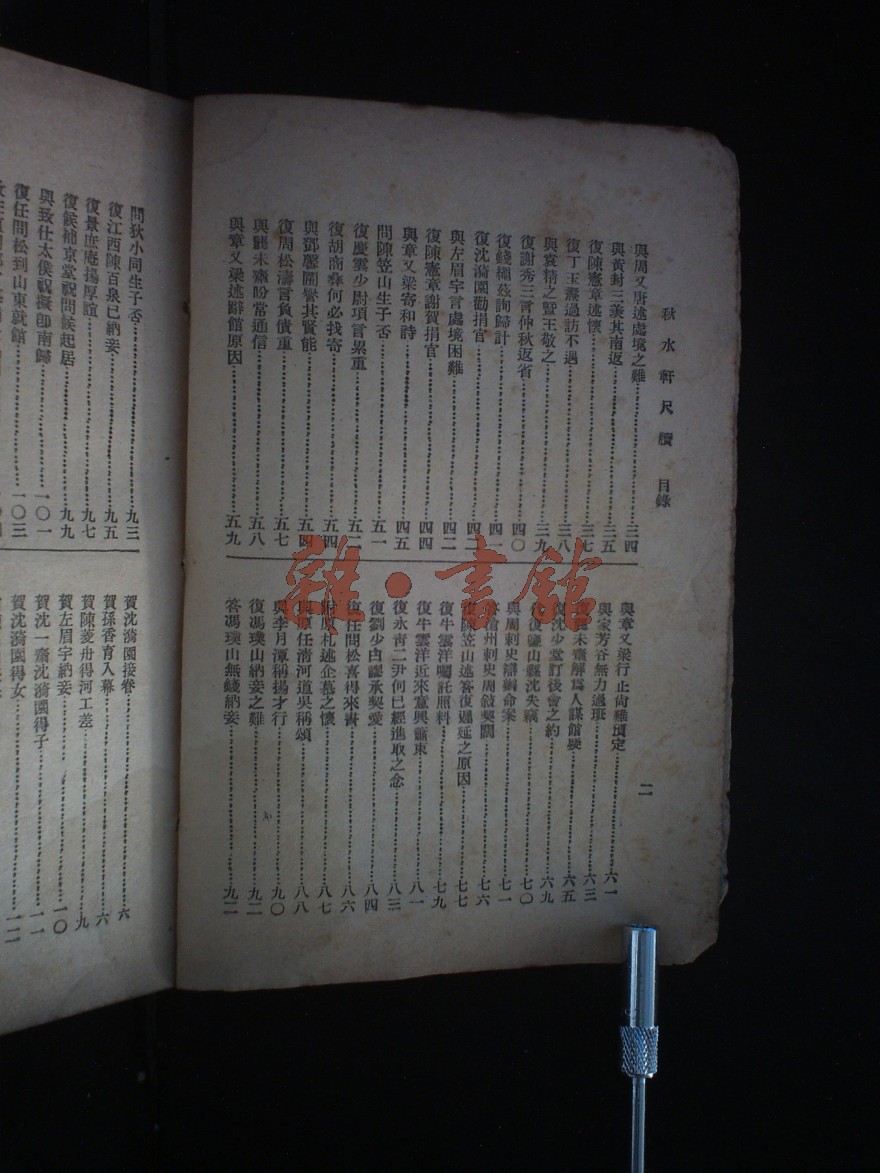 秋水軒尺牘 目錄
二
與周又唐述處境之難 三四
與黃封三羨其南返 三五
復陳憲章述懷 三七
復丁玉齋過訪不遇 三八
與袁精之暨王敬之 三九
復謝秀三言仲秋返省 四〇
復錢繩茲詢歸計 四一
復沈漪園勸捐官
與左眉宇言處境困難 四二
復陳憲章謝賀捐官 四四
與章又梁寄和詩 四五
問陳笠山生子否 五一
復慶雲少尉項言累重 五二
復胡商彝何必找寄 五四
與鄧馨圃譽其賢能 五四
復周松濤言負債重 五七
與龔未齋盼常通信 五八
與章又梁述辭館原因 五九
與章又梁行止尚難預定 六一
與家芳谷無力過班 六三
未齋解爲人謀館疑 六五
沈少堂訂後會之約 六九
復鹽山縣沈失竊 七〇
與周刺史辯鋼命案 七一
滄州刺史周敍契闊 七六
陳笠山述答復遲延之原因 七七
復牛雲洋囑託照料 七九
復牛雲洋近來意興蕭索 八一
復永靑二尹何已經進取之念 八三
復劉少白謬承契愛 八四
復任問松喜得來書 八六
札述企慕之懷 八七
與原任清河道吳稱頌 八八
與李月潭稱揚才行 九〇
復馮璞山納妾之難 九二
答馮璞山無錢納妾 九二
問狄小同生子否 九三
復江西陳百泉已納妾 九五
復景庶庵揚厚誼 九七
復候補京堂祝問候起居 九九
與致仕太僕祝擬卽南歸 一〇一
復任問松到山東就館 一〇三
賀沈漪園接眷 六
賀孫香育入幕 六
賀陳菱舟得河工差 九
賀左眉宇納妾 一〇
賀沈一齋沈漪園得子 一一
賀沈漪園得女 一二
雜·書館